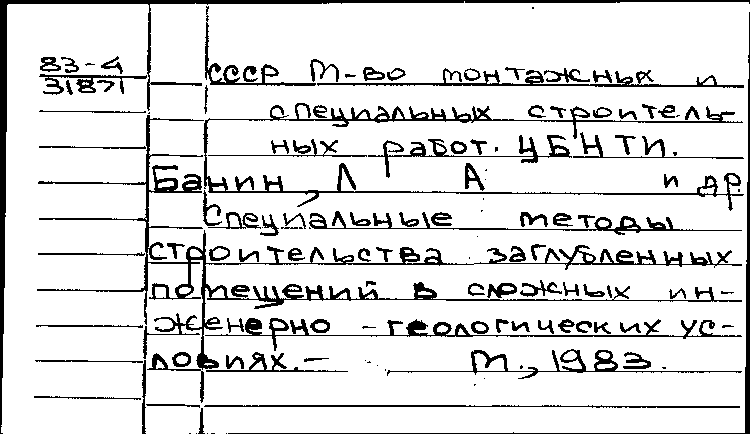 83-4
31871
СССР М-во монтажных и
специальных строитель-
ных работ. ЦБНТИ.
Банин, Л А и др.
Специальные методы
строительства заглубленных
помещений в сложных ин-
женерно-геологических ус-
ловиях.— М., 1983.